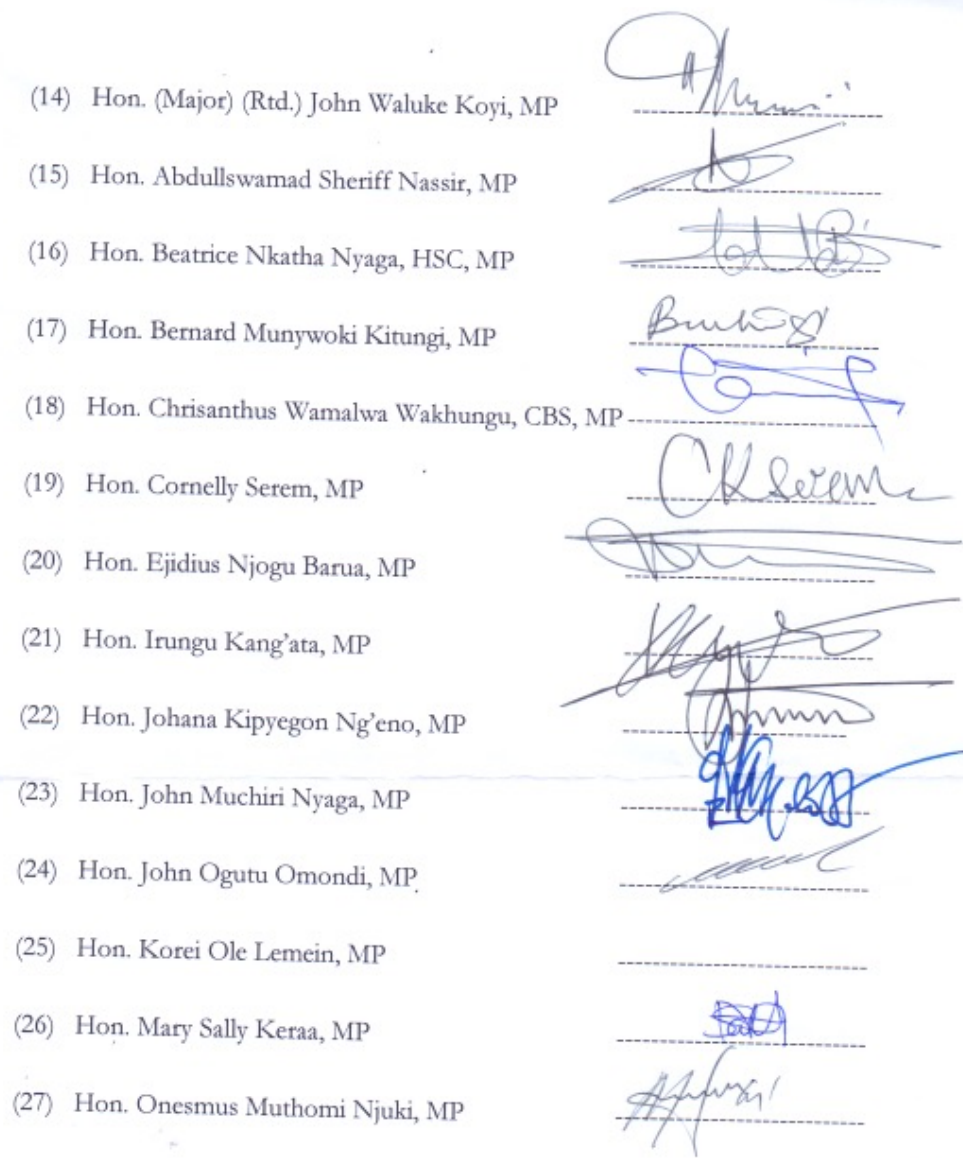 (14) Hon. (Major) (Rtd.) John Waluke Koyi, MP
(15) Hon. Abdullswamad Sheriff Nassir, MP
(16) Hon. Beatrice Nkatha Nyaga, HSC, MP
(17) Hon. Bernard Munywoki Kitungi, MP
(18) Hon. Chrisanthus Wamalwa Wakhungu, CBS, MP
(19) Hon. Cornelly Serem, MP CKSerem
(20) Hon. Ejidius Njogu Barua, MP
(21) Hon. Irungu Kang'ata, MP
(22) Hon. Johana Kipyegon Ng'eno, MP
(23) Hon. John Muchiri Nyaga, MP
(24) Hon. John Ogutu Omondi, MP
(25) Hon. Korei Ole Lemein, MP
(26) Hon. Mary Sally Keraa, MP
(27) Hon. Onesmus Muthomi Njuki, MP